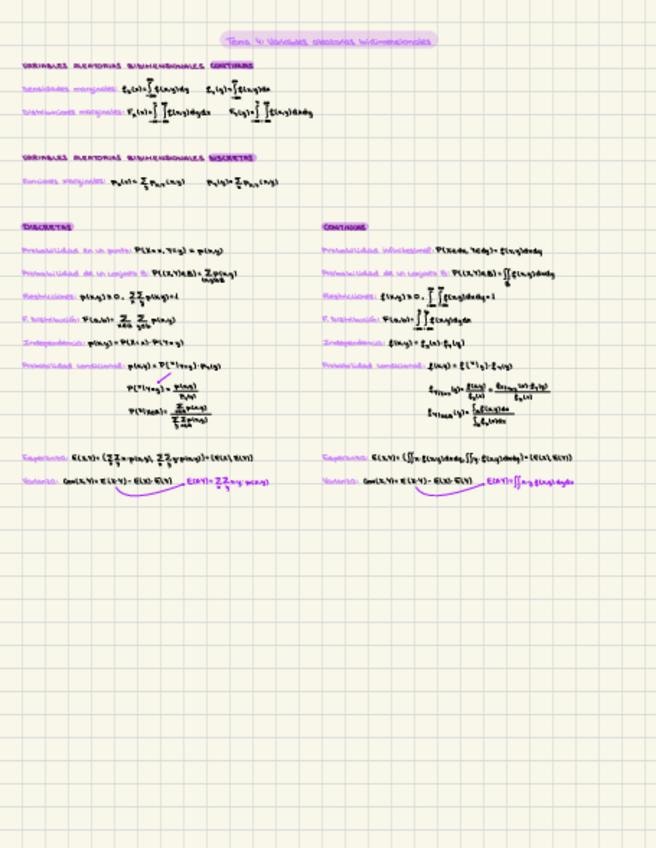 Tema 4: Variables aleatorias bidimensionales
VARIABLES ALEATORIAS BIDIMENSIONALES CONTINUAS
Densidades marginales: fₓ(x)=∫f(x,y)dy fᵧ(y)=∫f(x,y)dx
Distribuciones marginales: Fₓ(x)=∫∫f(x,y)dydx Fᵧ(y)=∫∫f(x,y)dxdy
VARIABLES ALEATORIAS BIDIMENSIONALES DISCRETAS
Funciones marginales: pₓ(x)=∑pₓ,ᵧ(x,y) pᵧ(y)=∑pₓ,ᵧ(x,y)
DISCRETAS
Probabilidad en un punto: P(X=x, Y=y) = p(x,y)
Probabilidad de un conjunto B: P((X,Y)∈B)=∑p(x,y)
Restricciones: p(x,y)≥0, ∑∑p(x,y)=1
F. Distribución: F(a,b)=∑ ∑ p(x,y)
Independencia: p(x,y)=P(X=x)·P(Y=y)
Probabilidad condicional:
Esperanza: E(X,Y)=(∑∑x·p(x,y), ∑∑y·p(x,y))=(E(X),E(Y))
Varianza: Cov(X,Y)=E(X·Y)-E(X)·E(Y) E(XY)=∑∑x·y·p(x,y)
CONTINUAS
Probabilidad infinitesimal: P(X∈dx, Y∈dy)=f(x,y)dxdy
Probabilidad de un conjunto B: P((X,Y)∈B)=∬f(x,y)dxdy
Restricciones: f(x,y)≥0, ∫∫f(x,y)dxdy=1
F. Distribución: F(a,b)=∫∫f(x,y)dydx
Independencia: f(x,y)=fₓ(x)·fᵧ(y)
Probabilidad condicional:
Esperanza: E(X,Y)=(∬x·f(x,y)dxdy, ∬y·f(x,y)dxdy)=(E(X),E(Y))
Varianza: Cov(X,Y)=E(X·Y)-E(X)·E(Y) E(XY)=∬x·y·f(x,y)dydx